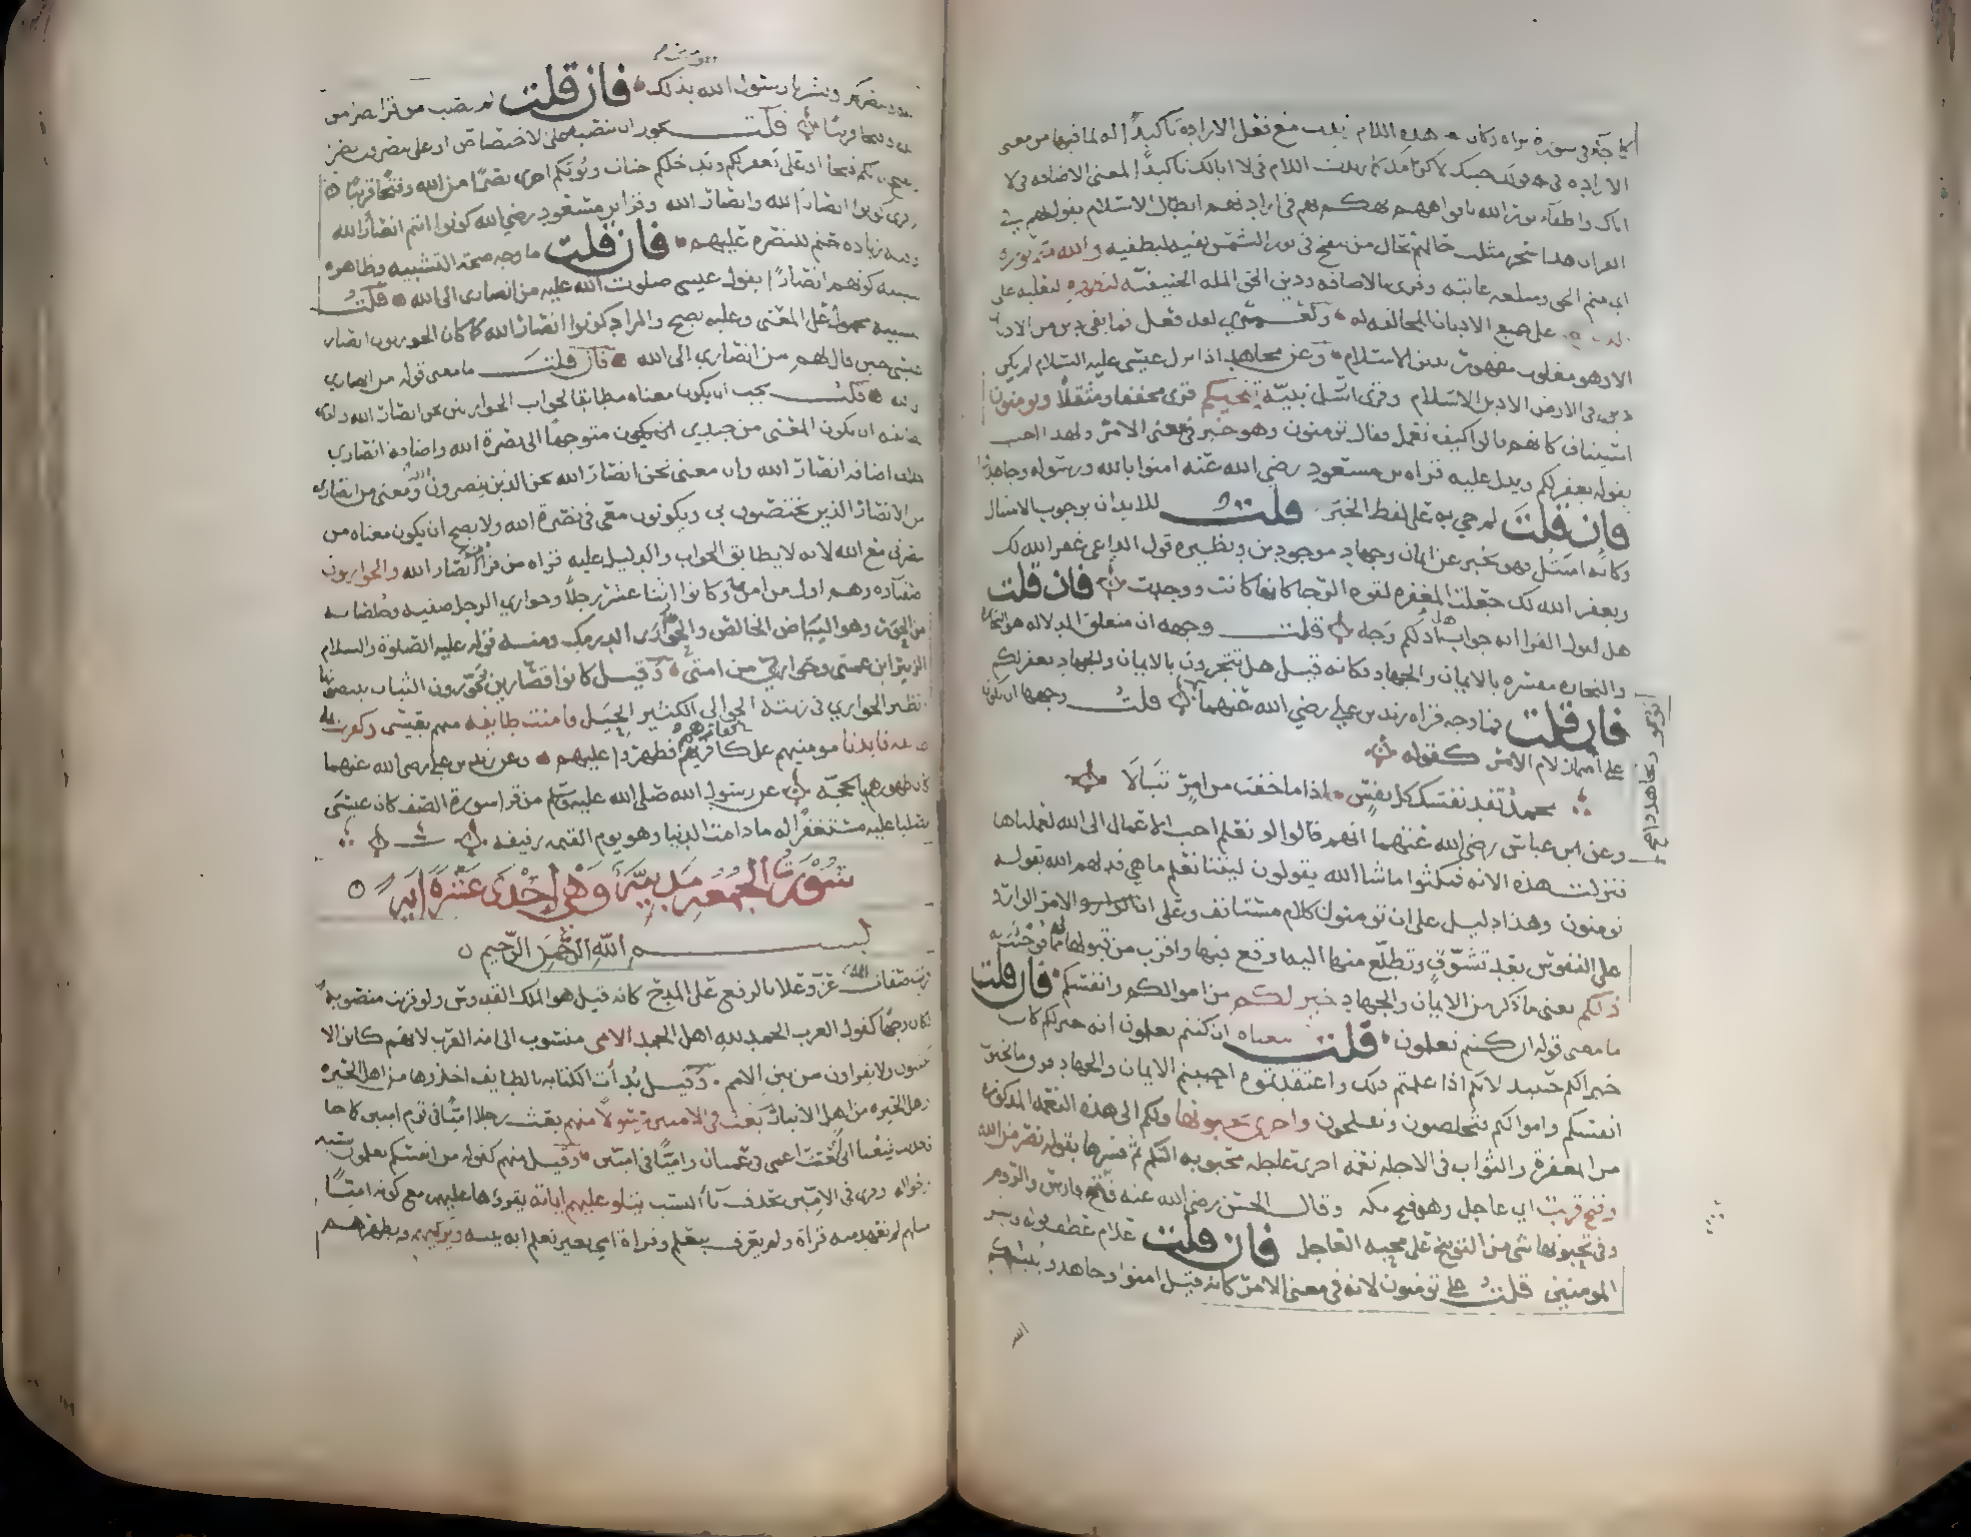 كما جآ في سورة براه وكان هذه اللام زيدت مع فعل الارادة تاكيدًا له لما فيها من معنى
الاراده في قولك جيتك لاكرمك كما زيدت اللام في لا ابالك تاكيدًا لمعنى الاضافه في لا
اباك واطفاء نور الله بافواههم تهكم بهم في ارادتهم ابطال الاسلام بقولهم في
القران هذا سحر مثلت حالهم بحال من ينفخ في نور الشمس بفيه ليطفيه والله متم نوره
اي متم الحق ومبلغه غايته وقرى بالاضافه ودين الحق المله الحنيفيه ليظهره ليعليه على
على جميع الاديان المخالفه له ولعمري لقد فعل فما بقي دين من الاديان
الا وهو مغلوب مقهور بدين الاسلام وعن مجاهد اذا نزل عيسى عليه السلام لم يكن
دين في الارض الا دين الاسلام وقرى اسل بنيه تنجيكم قرى مخففا ومثقلًا وتومنون
استيناف كانهم قالوا كيف نعمل فقال تومنون وهو خبر في معنى الامر ولهذا اجيب
بقوله يغفر لكم ويدل عليه قراه بن مسعود رضي الله عنه امنوا بالله ورسوله وجاهدوا
فان قلت لم جي به على لفظ الخبر قلت للايذان بوجوب الامتثال
وكانه امتثل فهو يخبر عن ايمان وجهاد موجودين ونظيره قول الداعي غفر الله لك
ويغفر الله لك جعلت المغفره لقوه الرجا كانها كانت ووجدت فان قلت
هل لقول الفرا انه جواب هل ادلكم وجه قلت وجهه ان متعلق الدلاله هو التجاره
والتجاره مفسره بالايمان والجهاد فكانه قيل هل تتجرون بالايمان والجهاد يغفر لكم
فان قلت فما وجه قراه زيد بن علي رضي الله عنهما قلت وجهها ان يكون
على اضمار لام الامر كقوله
محمد تفد نفسك كل نفس اذا ما خفت من امر تبالا
وعن ابن عباس رضي الله عنهما انهم قالوا لو نعلم احب الاعمال الى الله لعملناها
فنزلت هذه الايه فمكثوا ما شا الله يقولون ليتنا نعلم ما هي فدلهم الله بقوله
تومنون وهذا دليل على ان تومنون كلام مستانف وعلى ان الامر الوارد
على النفوس بعد تشوف وتطلع منها اليه اوقع فيها واقرب من قبولها له مما فوجيت به
ذلكم يعني ما ذكر من الايمان والجهاد خير لكم من اموالكم وانفسكم فان قلت
ما معنى قوله ان كنتم تعلمون قلت معناه ان كنتم تعلمون انه خير لكم كان
خيرا لكم حينيد لانكم اذا علمتم ذلك واعتقدتموه احببتم الايمان والجهاد فوق ما تحبون
انفسكم واموالكم فتخلصون وتفلحون واخرى تحبونها ولكم الى هذه النعمه المذكوره
من المغفرة والثواب في الاجله نعمه اخرى عاجله محبوبه اليكم ثم فسرها بقوله نصر من الله
وفتح قريب اي عاجل وهو فتح مكه وقال الحسن رضي الله عنه فتح فارس والروم
وفي تحبونها شي من التوبيخ على محبه العاجل فان قلت علام عطف قوله وبشر
المومنين قلت على تومنون لانه في معنى الامر كانه قيل امنوا وجاهدوا
فان قلت لم نصب من قرا نصرا من
وينصركم وبشر يا رسول الله بذلك
قلت يجوز ان ينصب على الاختصاص او على تنصرون نصرا
ويفتح لكم فتحا او على يغفر لكم ويدخلكم جنات ويوتكم اخرى نصرًا من الله وفتحًا قريبًا
قرى كونوا انصار الله وانصارًا لله وقرا بن مسعود رضي الله كونوا انتم انصار الله
وفيه زياده حتم للنصره عليهم فان قلت ما وجه صحة التشبيه وظاهره
تشبيه كونهم انصارًا بقول عيسى صلوات الله عليه من انصارى الى الله قلت
التشبيه محمول على المعنى وعليه يصح والمراد كونوا انصار الله كما كان الحواريون انصار
عيسى حين قال لهم من انصاري الى الله فان قلت ما معنى قوله من انصاري
الى الله قلت يجب ان يكون معناه مطابقا لجواب الحواريين نحن انصار الله والذي
يطابقه ان يكون المعنى من جندي متوجهًا الى نصرة الله واضافة انصاري
خلاف اضافه انصار الله وان معنى نحن انصار الله نحن الذين ينصرون الله ومعنى من انصاري
من الانصار الذين يختصون بي ويكونون معي في نصرة الله ولا يصح ان يكون معناه من
ينصرني مع الله لانه لا يطابق الجواب والدليل عليه قراه من قرا انصار الله والحواريون
اصفياوه وهم اول من امن به وكانوا اثنا عشر رجلًا وحواري الرجل صفيه وخلصانه
من الحور وهو البياض الخالص والحوارى الدرمك ومنه قوله عليه الصلوة والسلام
الزبير ابن عمتي وحواريي من امتي وقيل كانوا قصارين يحورون الثياب يبيضونها
ونظير الحواري في زنته الحوالي الكثير الحيل فامنت طايفه منهم بعيسى وكفرت به
طايفه فايدنا مومنيهم على كفارهم فظهروا عليهم وعن زيد بن علي رضي الله عنهما
كان ظهورهم بالحجه عن رسول الله صلى الله عليه وسلم من قرا سورة الصف كان عيسى
مصليا عليه مستغفرًا له ما دامت الدنيا وهو يوم القيمه رفيقه
سورة الجمعه مدنيه وهي احدى عشرة ايه
بسم الله الرحمن الرحيم
قريت صفات الله عز وعلا بالرفع على المدح كانه قيل هو الملك القدوس ولو قريت منصوبه
لكان وجهًا كقول العرب الحمد لله اهل الحمد الامي منسوب الى امه العرب لانهم كانوا لا
يكتبون ولا يقراون من بين الامم وقيل بدات الكتابه بالطايف اخذوها من اهل الحيره
واهل الحيره من اهل الانبار بعث في الاميين رسولًا منهم بعث رجلا اميًا في قوم اميين كما جا
في حديث شعيا اني ابعث اعمى في عميان واميًا في اميين وقيل منهم كقوله من انفسكم يعلمون نسبه
واحواله وقرى في الامين بحذف يآ النسب يتلو عليهم اياته يقروها عليهم مع كونه اميًا
مثلهم لم تعهد منه قراة ولم يعرف بتعلم وقراة امي بغير تعلم ايه بينه ويزكيهم ويطهرهم